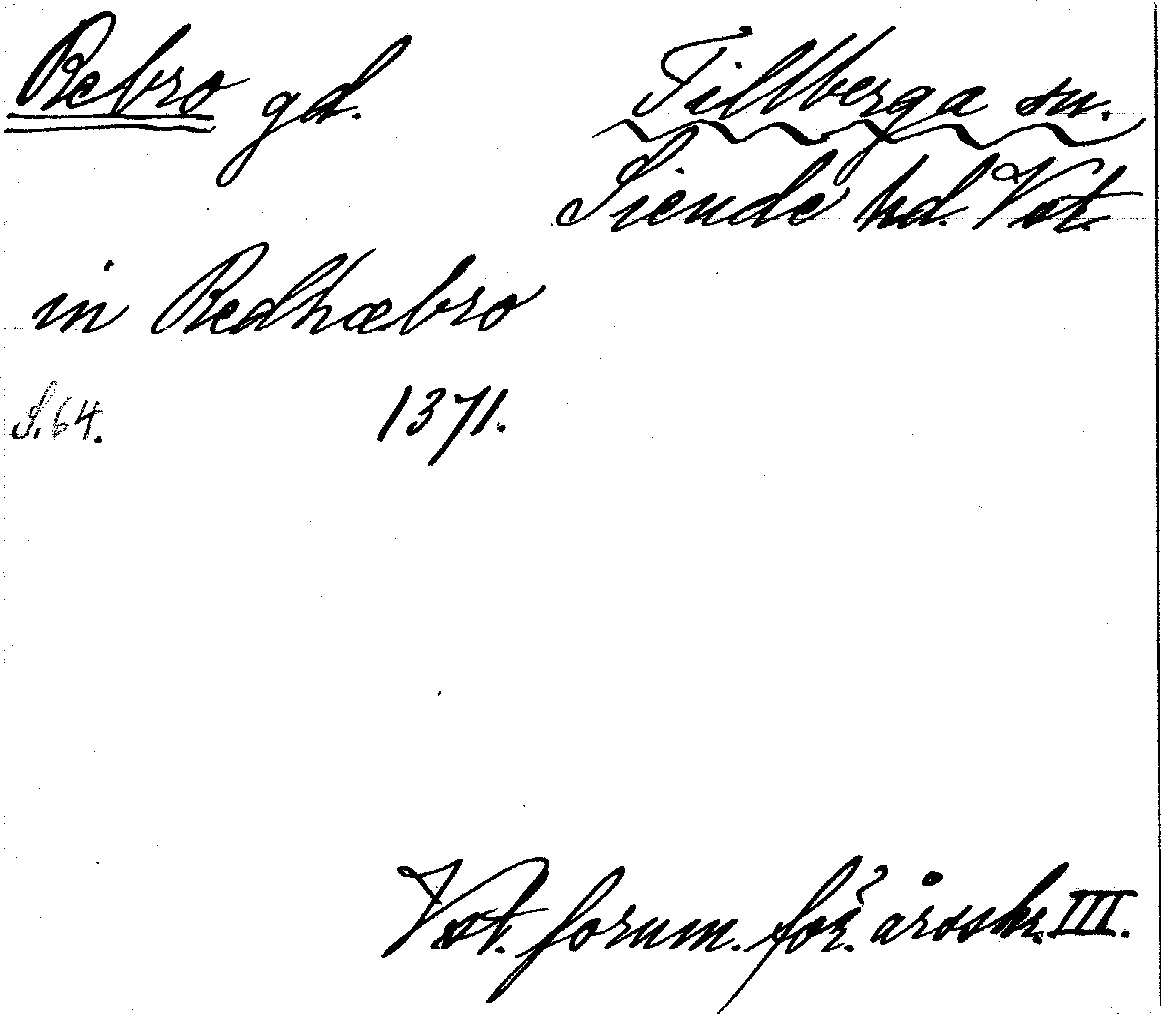 Rebro gd.
Tillberga sn.
Siende hd. Vst.
in Redhæbro
S. 64. 1371.
Vst. fornm. för. årsskr. III.